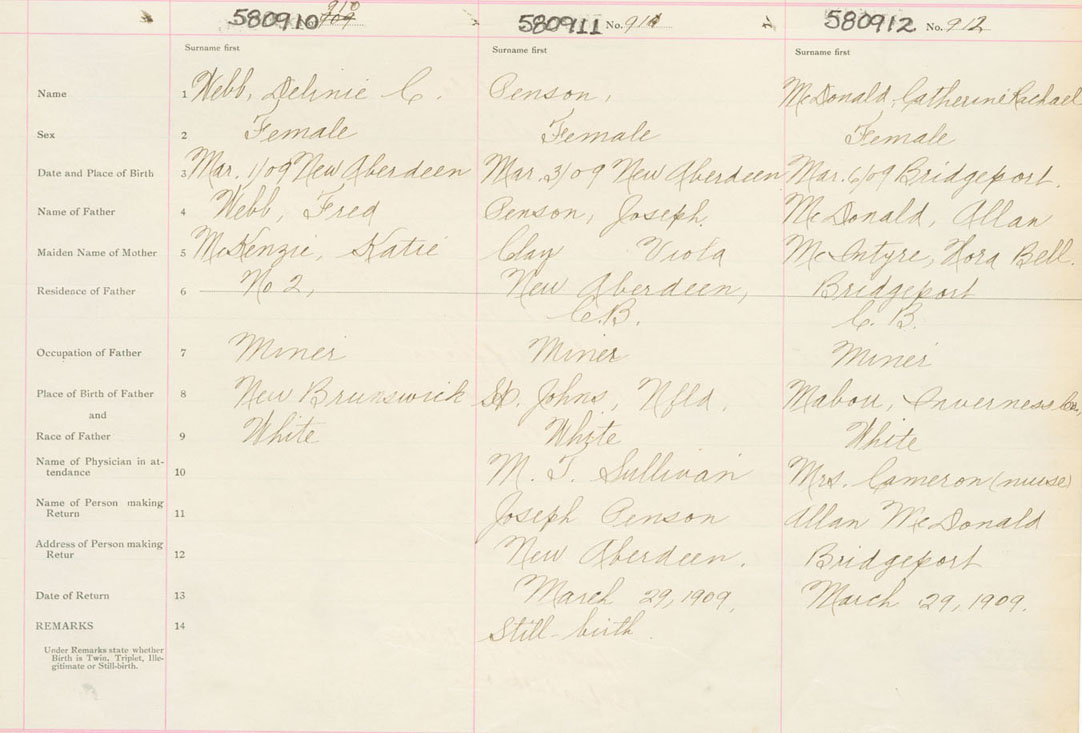 580910 910 909 580911 No. 911 580912 No. 912
Surname first Surname first Surname first
Name 1 Webb, Delinie C. Penson, McDonald, Catherine Rachael
Sex 2 Female Female Female
Date and Place of Birth 3 Mar. 1/09 New Aberdeen Mar. 3/09 New Aberdeen Mar. 6/09 Bridgeport.
Name of Father 4 Webb, Fred Penson, Joseph. McDonald, Allan
Maiden Name of Mother 5 McKenzie, Katie Clay Viola McIntyre, Flora Bell.
Residence of Father 6 No 2, New Aberdeen, Bridgeport
C.B. C. B.
Occupation of Father 7 Miner Miner Miner
Place of Birth of Father 8 New Brunswick St. Johns, Nfld. Mabou, Inverness Co.,
and
Race of Father 9 White White White
Name of Physician in at-
tendance 10 M. T. Sullivan Mrs. Cameron (nurse)
Name of Person making
Return 11 Joseph Penson Allan McDonald
Address of Person making
Retur 12 New Aberdeen. Bridgeport
Date of Return 13 March 29, 1909. March 29, 1909.
REMARKS 14 Still-birth.
Under Remarks state whether
Birth is Twin, Triplet, Ille-
gitimate or Still-birth.